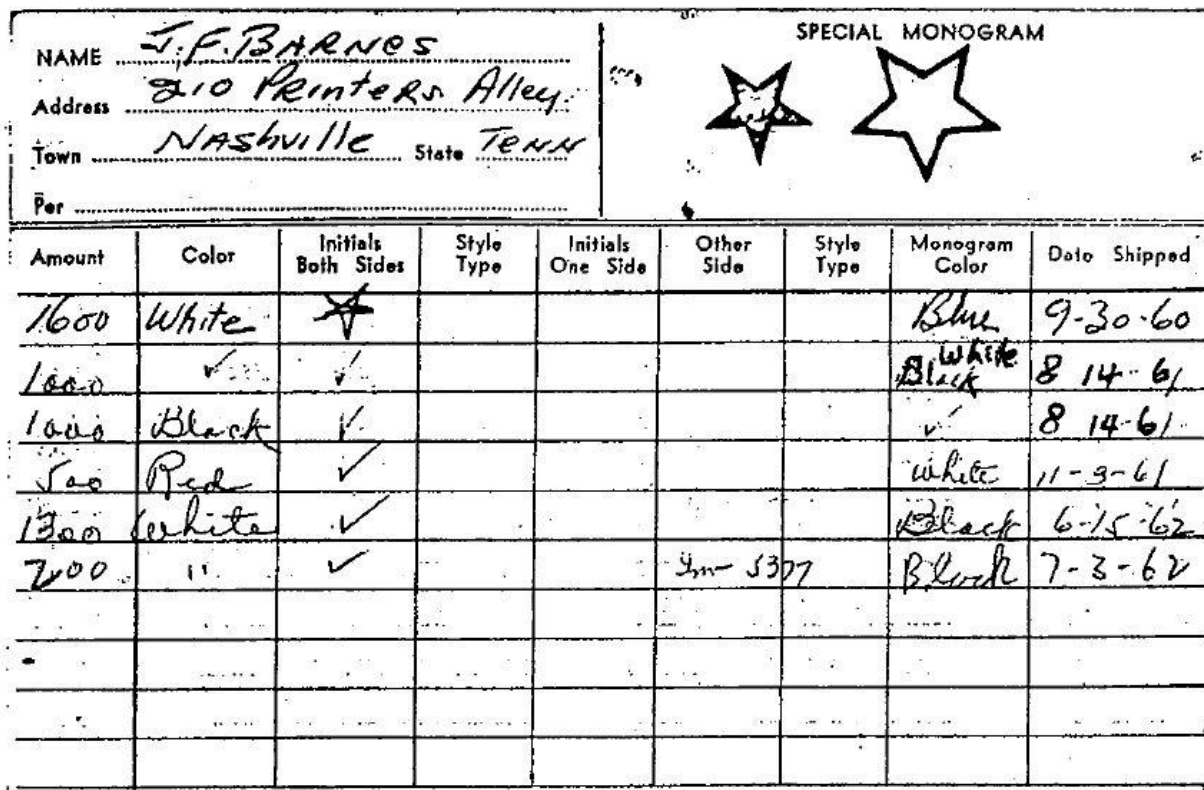 NAME J.F. BARNES
SPECIAL MONOGRAM
Address 210 Printers Alley
Town Nashville State Tenn
Per
Amount Color Initials Both Sides Style Type Initials One Side Other Side Style Type Monogram Color Date Shipped
1600 White Blue 9-30-60
1000 ✓ ✓ Black White 8 14-61
1000 Black ✓ ✓ 8 14-61
500 Red ✓ white 11-3-61
1300 White ✓ Black 6-15-62
200 " ✓ 5377 Black 7-3-62